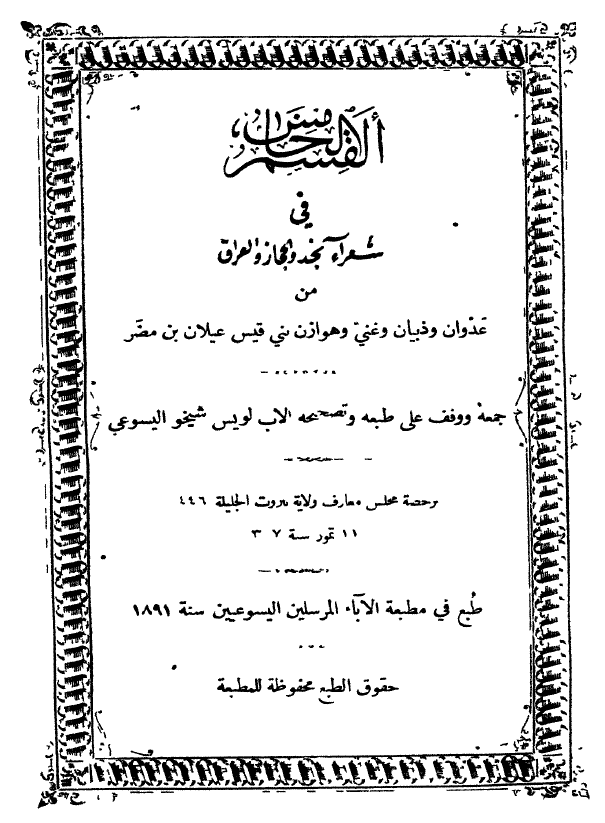 ألقسم الخامس
في
شعراء نجد والحجاز والعراق
من
عَدْوان وذبيان وغني وهوازن بني قيس عيلان بن مضر
جمعهُ ووقف على طبعه وتصحيحه الاب لويس شيخو اليسوعي
برخصة مجلس معارف ولاية بيروت الجليلة ٤٤٦
١١ تموز سنة ٣٠٧
طُبع في مطبعة الآباء المرسلين اليسوعيين سنة ١٨٩١
حقوق الطبع محفوظة للمطبعة